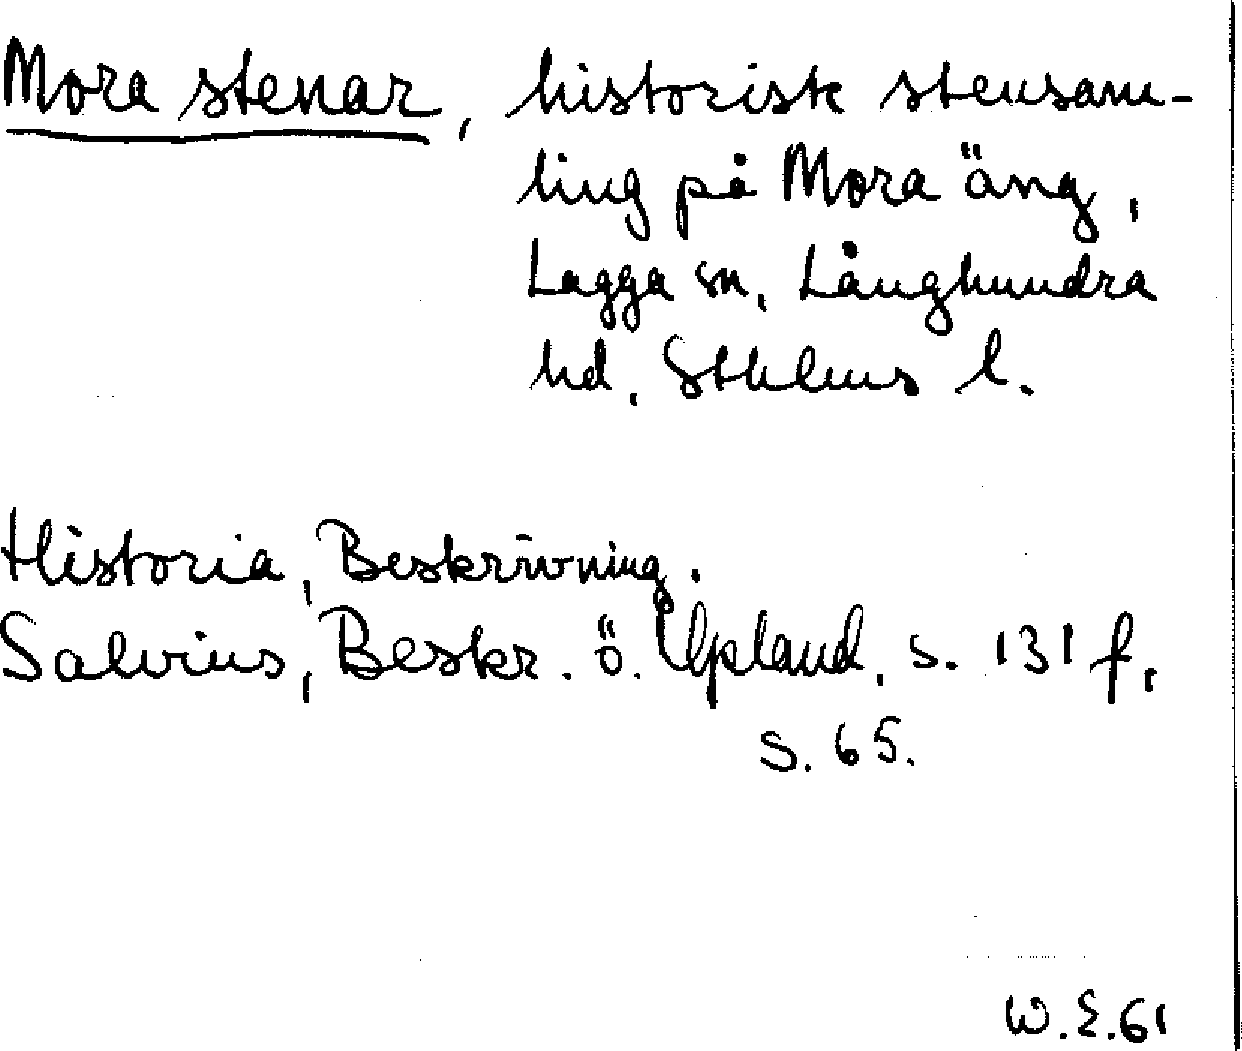 Mora stenar, historisk stensam-
ling på Mora äng,
Lagga sn, Långhundra
hd, Sthlms l.
Historia, Beskrivning.
Salvius, Beskr. ö. Upland, s. 131 f,
s. 65.
W.E.61